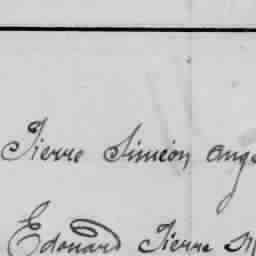 Pierre Siméon Ange
Edouard Pierre M